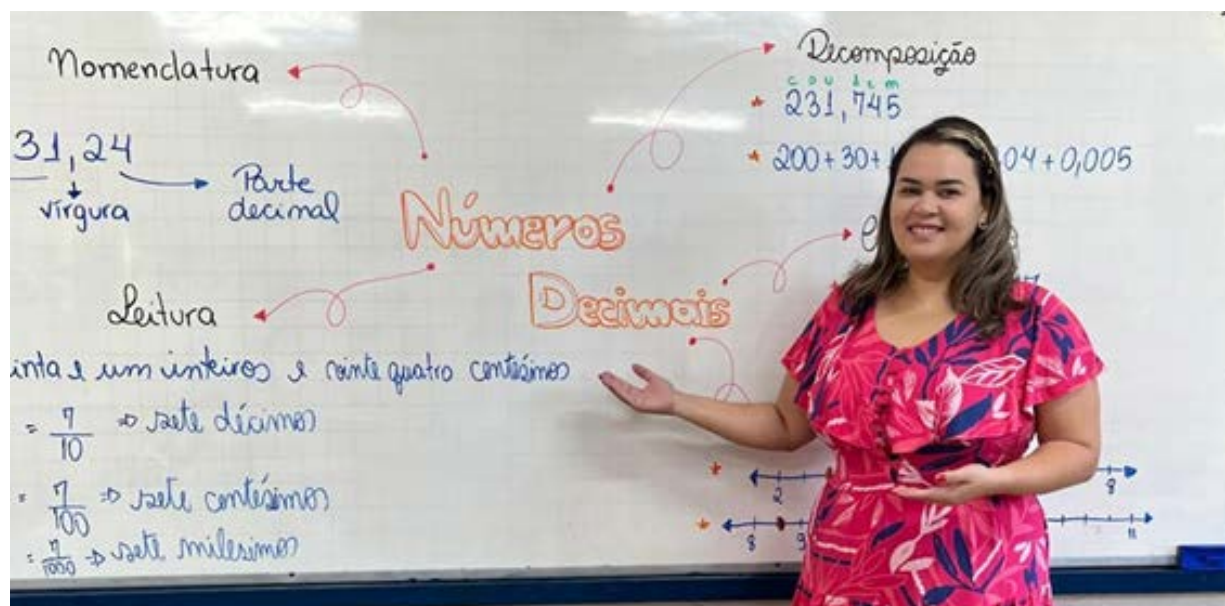 Nomenclatura
31,24
vírgura
Parte
decimal
Números
Decimais
Leitura
inta e um inteiros e vinte quatro centésimos
= 7/10 ⇒ sete décimos
= 7/100 ⇒ sete centésimos
= 7/1000 ⇒ sete milesimos
Decomposição
c d u d c m
231,745
200+30+ 04+0,005
2 8
8 9 11